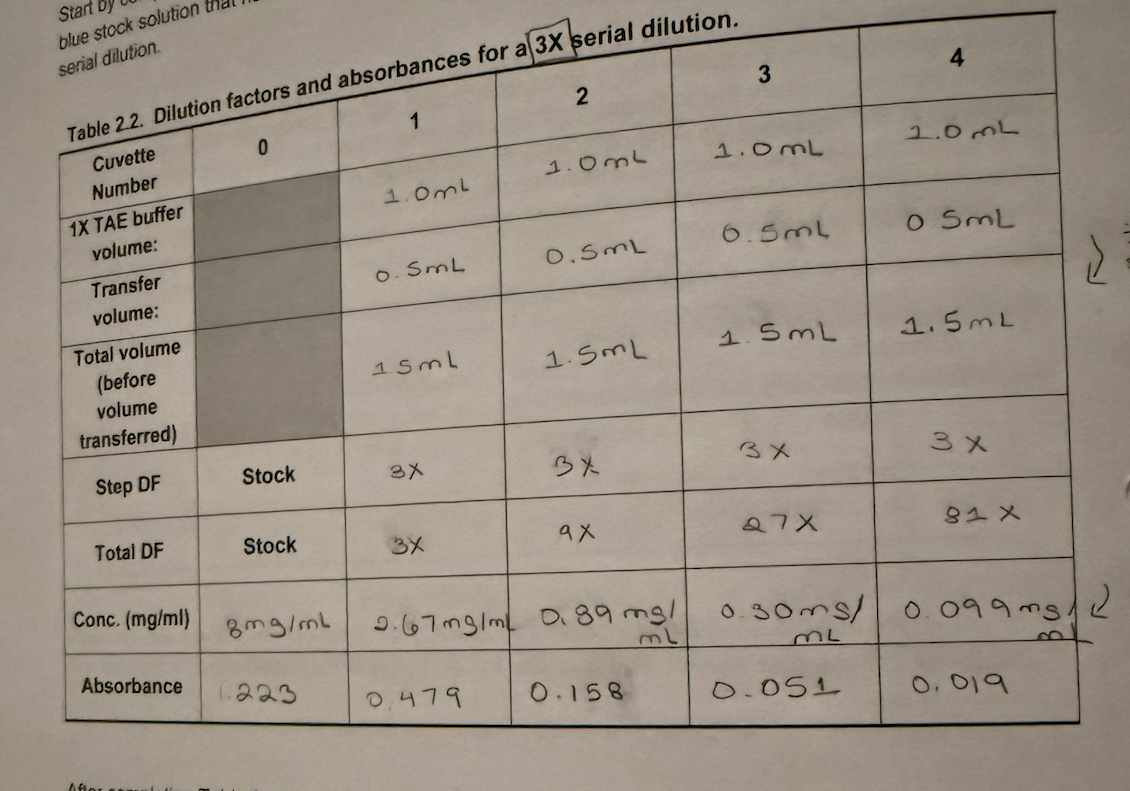 Start by
blue stock solution that
serial dilution.
Table 2.2. Dilution factors and absorbances for a 3X serial dilution.
Cuvette Number 0 1 2 3 4
1X TAE buffer volume: 1.0mL 1.0mL 1.0mL 1.0mL
Transfer volume: 0.5mL 0.5mL 0.5mL 0 5mL
Total volume (before volume transferred) 1 5mL 1.5mL 1 5mL 1.5mL
Step DF Stock 3X 3X 3X 3X
Total DF Stock 3X 9X 27X 81X
Conc. (mg/ml) 8mg/mL 2.67mg/mL 0.89 mg/mL 0.30mg/mL 0.099mg/mL
Absorbance 1.223 0.479 0.158 0.051 0.019